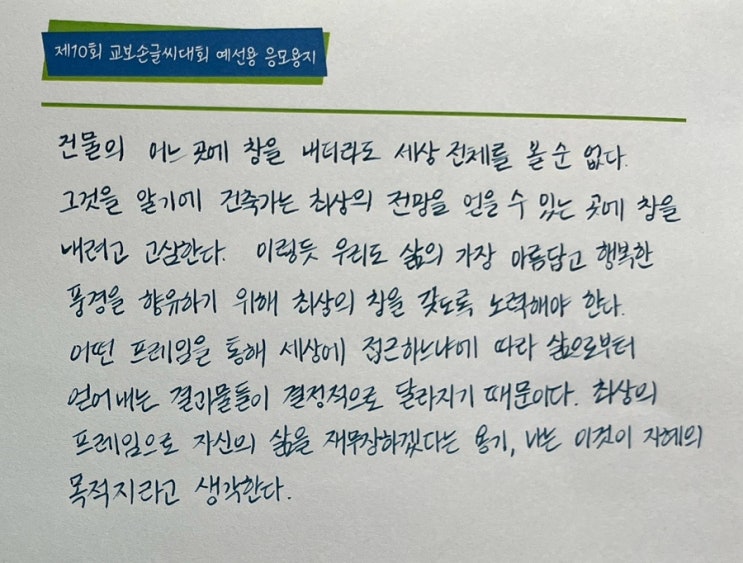 제10회 교보손글씨대회 예선용 응모용지
건물의 어느 곳에 창을 내더라도 세상 전체를 볼 순 없다.
그것을 알기에 건축가는 최상의 전망을 얻을 수 있는 곳에 창을
내려고 고심한다. 이렇듯 우리도 삶의 가장 아름답고 행복한
풍경을 향유하기 위해 최상의 창을 갖도록 노력해야 한다.
어떤 프레임을 통해 세상에 접근하느냐에 따라 삶으로부터
얻어내는 결과물들이 결정적으로 달라지기 때문이다. 최상의
프레임으로 자신의 삶을 재무장하겠다는 용기, 나는 이것이 지혜의
목적지라고 생각한다.